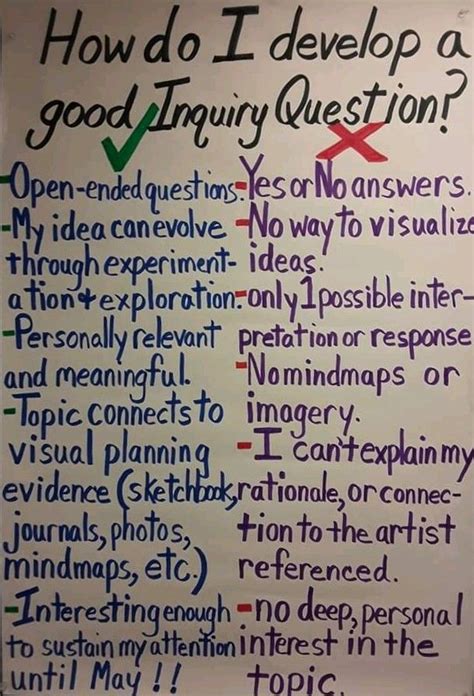 How do I develop a
good Inquiry Question?
-Open-ended questions.
-My idea can evolve
through experiment-
ation + exploration.
-Personally relevant
and meaningful.
-Topic connects to
visual planning
evidence (sketchbook,
journals, photos,
mindmaps, etc.)
-Interesting enough
to sustain my attention
until May!!
-Yes or No answers.
-No way to visualize
ideas.
-only 1 possible inter-
pretation or response
-No mindmaps or
imagery.
-I can't explain my
rationale, or connec-
tion to the artist
referenced.
-no deep, personal
interest in the
topic.